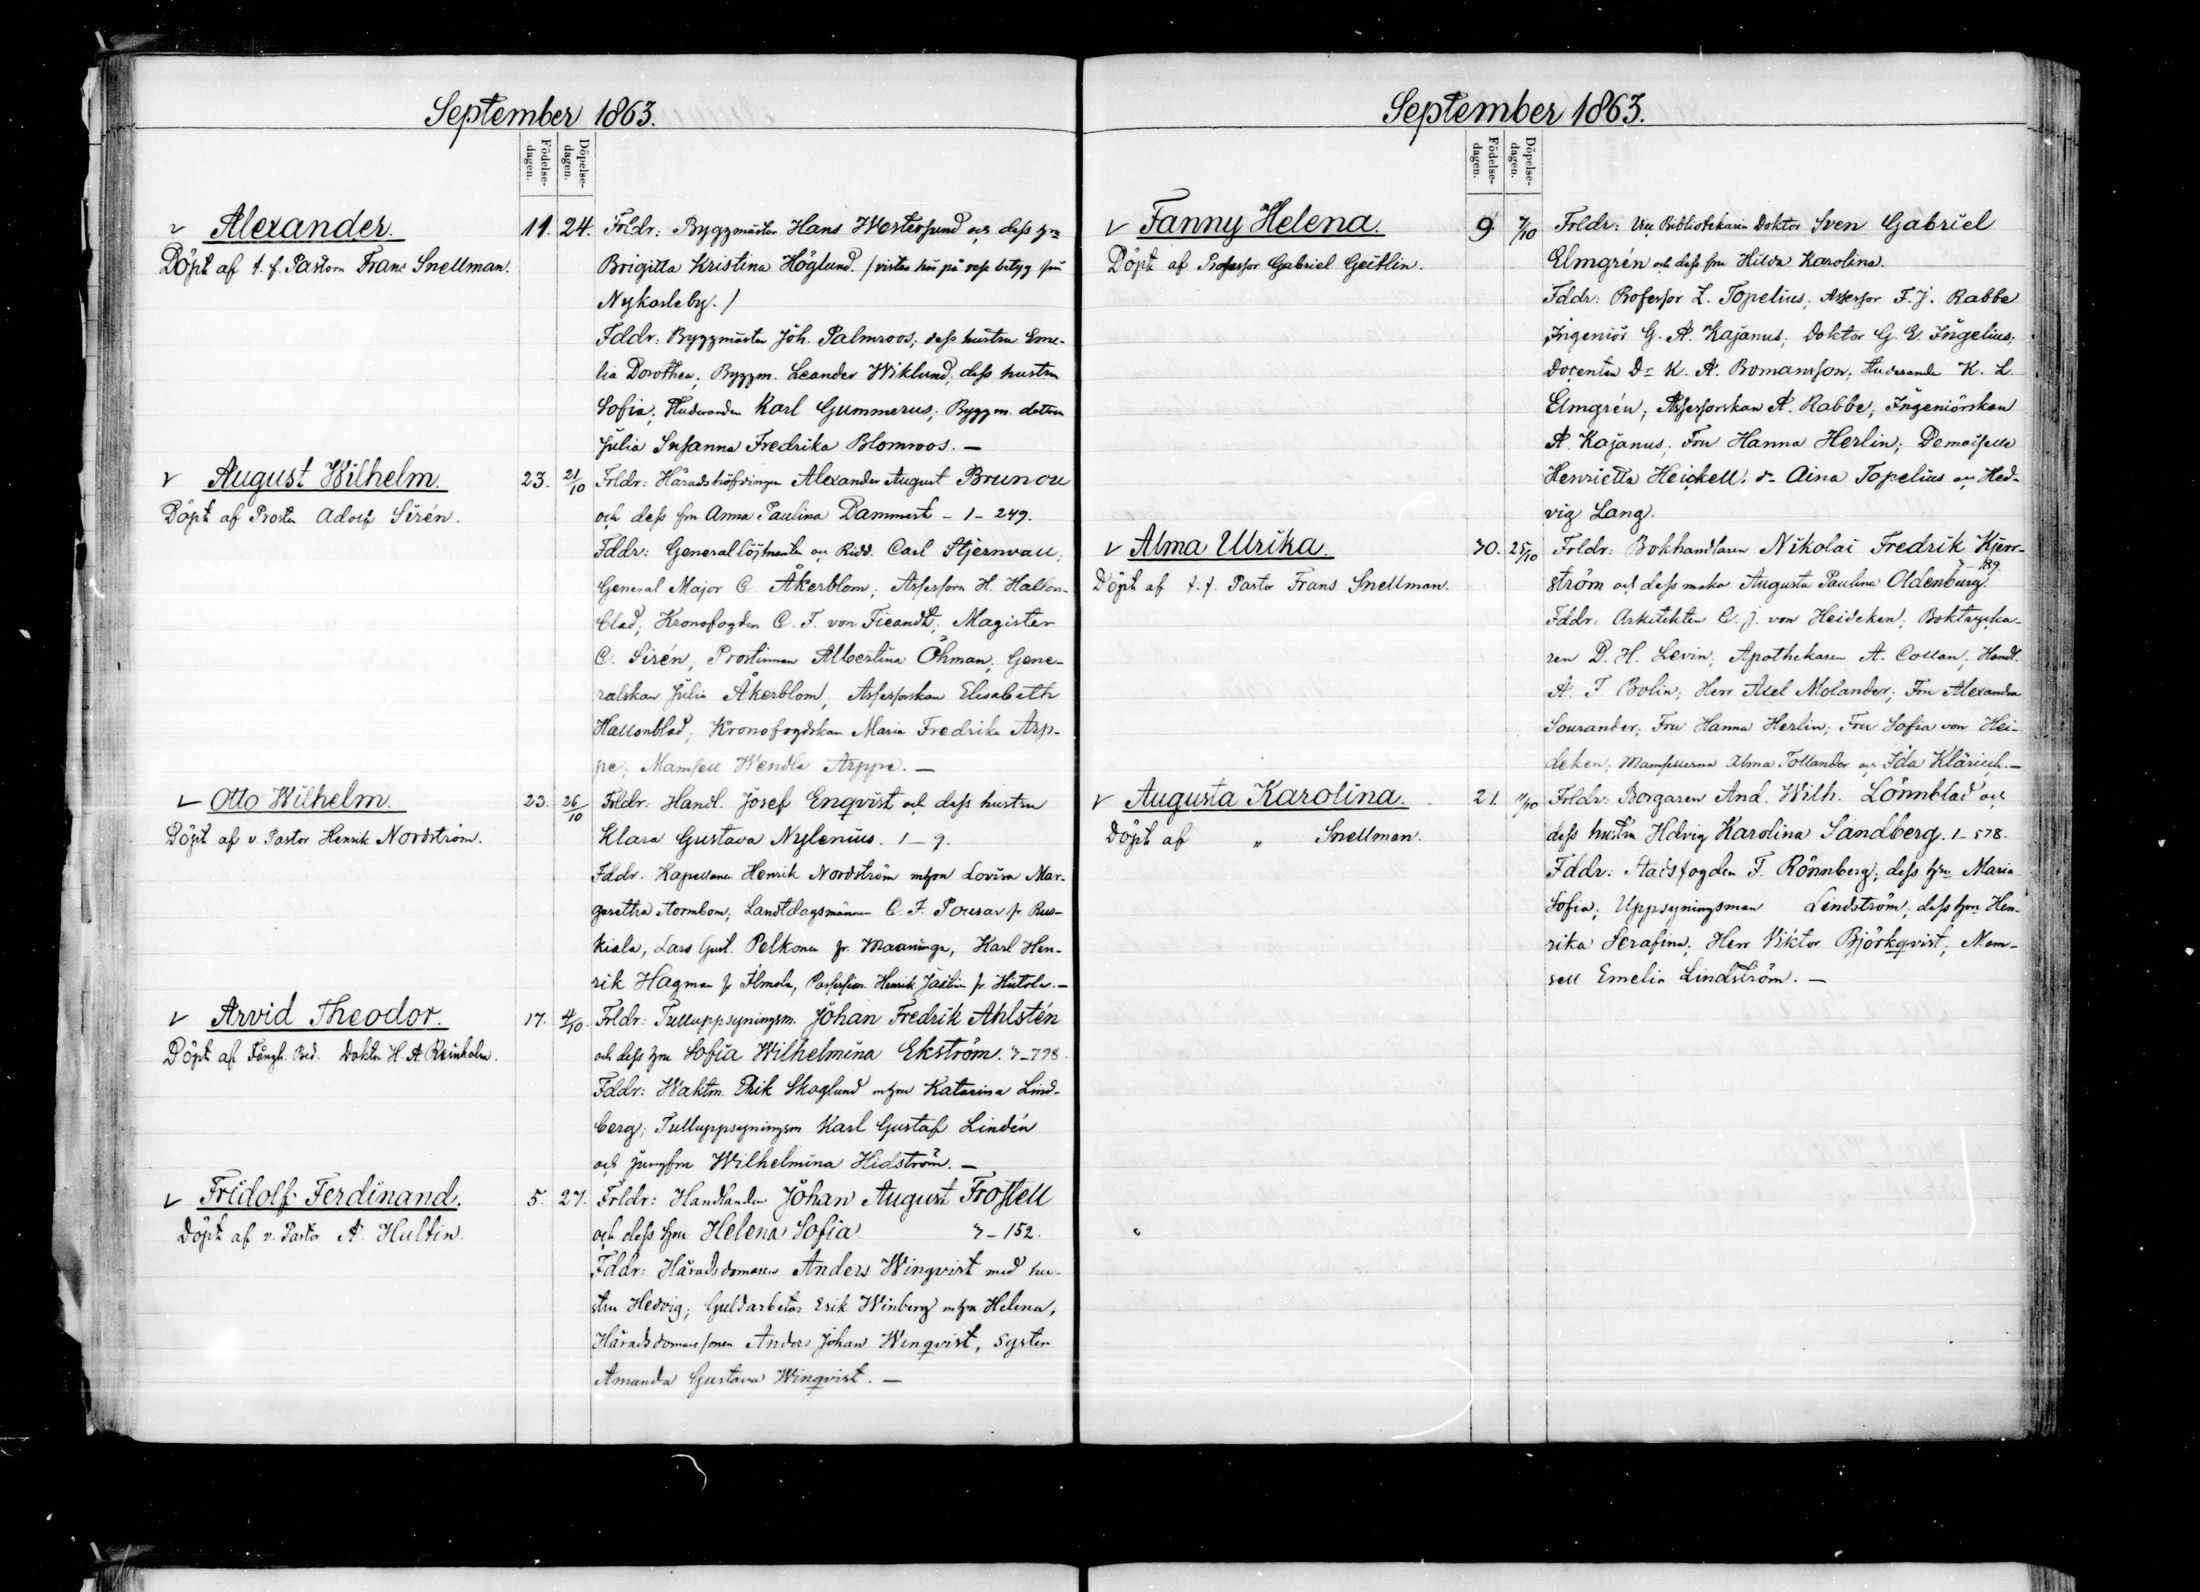 September 1863.
Födelse-
dagen.
Döpelse-
dagen.
Alexander. 11. 24. Frldr: Byggmästar Hans Westersund och dess hru
Döpt af t. f. Pastorn Frans Snellman. Brigitta Kristina Höglund. /vistas här på resebetyg från
Nykarleby./
Fddr: Byggmästar Joh. Palmroos; dess hustru Eme-
lia Dorothea; Byggm. Leander Wiklund, dess hustru
Sofia; Studeranden Karl Gummerus; Byggm. dottren
Julia Susanna Fredrika Blomroos. —
August Wilhelm. 23. 21/10 Frldr: Häradshöfdingen Alexander August Brunou
Döpt af Prosten Adolf Sirén. och dess fru Anna Paulina Dammert – 1 – 249.
Fddr: Generallöjtnanten och Ridd. Carl Stjernvall,
General Major C. Åkerblom, Assessorn H. Hallon-
blad; Kronofogden C. F. von Fieandt; Magister
C. Sirén; Prostinnan Albertina Öhman; Gene-
ralskan Julia Åkerblom, Assessorskan Elisabeth
Hallonblad; Kronofogdskan Maria Fredrika Arp-
pe; Mamsell Wendla Arppe. —
Otto Wilhelm. 23. 26/10 Frldr: Handl. Josef Enqvist och dess hustru
Döpt af v. Pastor Henrik Nordström. Klara Gustava Nylenius. 1 – 9.
Fddr. Kapellanen Henrik Nordström m hru Lovisa Mar-
garetha Stormbom; Landtdagsmännen C. F. Pousar fr. Rus-
kiala, Lars Gust. Pelkonen fr. Maaninga, Karl Hen-
rik Hagman fr Ilmola, Possession. Henrik Jaslin fr. Hiitola. —
Arvid Theodor. 17. 4/10. Frldr: Tulluppsyningsm. Johan Fredrik Ahlstén
Döpt af Fångh. Pred. Doktor H. A Reinholm. och dess hru Sofia Wilhelmina Ekström. 3 – 798.
Fddr: Waktm. Erik Skoglund m hru Katarina Lind-
berg; Tulluppsyningsm Karl Gustaf Lindén
och jungfru Wilhelmina Hidström. —
Fridolf Ferdinand. 5. 27. Frldr: Handlanden Johan August Frostell
Döpt af v. Pastor A. Hultin. och dess hru Helena Sofia 3 – 152.
Fddr: Häradsdomaren Anders Winqvist med hu-
stru Hedvig; Guldarbetar Erik Winberg m hru Helena;
Häradsdomaresonen Anders Johan Winqvist, syster
Amanda Gustava Winqvist. —
September 1863.
Födelse-
dagen.
Döpelse-
dagen.
Fanny Helena. 9. 7/10 Frldr: Vice Bibliotekarien Doktor Sven Gabriel
Döpt af Professor Gabriel Geitlin. Elmgrén och dess fru Hilda Karolina.
Fddr: Professor Z. Topelius; Assessor F. J. Rabbe
Ingeniör G. A. Kajanus; Doktor G. E. Ingelius;
Docenten Dr K. A. Bomansson; Studerande K. L.
Elmgrén; Assessorskan A. Rabbe; Ingeniörskan
A. Kajanus; Fru Hanna Herlin; Demoiselle
Henrietta Heickell; do Aina Topelius och Hed-
vig Lang.
Alma Ulrika. 30. 25/10 Frldr: Bokhandlaren Nikolai Fredrik Kjerr-
Döpt af t. f. Pastor Frans Snellman. ström och dess maka Augusta Paulina Oldenburg. 3 – 189.
Fddr: Arkitekten C. J. von Heideken; Boktrycka-
ren D. H. Levin; Apothekaren A. Collan; Handl.
A. F. Bolin; Herr Axel Molander; Fru Alexandra
Sourander; Fru Hanna Herlin; Fru Sofia von Hei-
deken; Mamsellerna Alma Tollander och Ida Klärich. —
Augusta Karolina. 21. 11/10 Frldr: Borgaren And. Wilh. Lönnblad och
Döpt af „ Snellman. dess hustru Hedvig Karolina Sandberg. 1 – 578.
Fddr: Stadsfogden F. Rönnberg; dess hru Maria
Sofia; Uppsyningsman Lindström; dess hru Hen-
rika Serafina; Herr Viktor Björkqvist; Mam-
sell Emelia Lindström. —